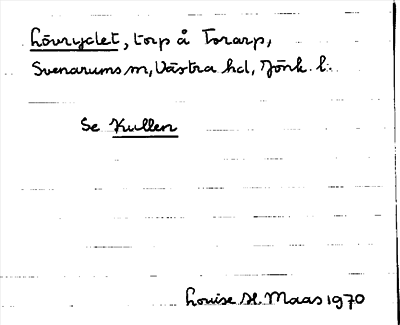 Lövrydet, torp å Torarp,
Svenarums sn, Västra hd, Jönk. l:
Se Kullen
Louise H. Maas 1970